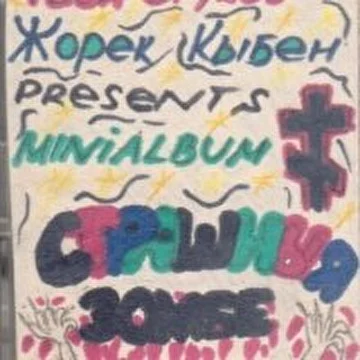 Жорек Кыбен
PRESENTS
MINIALBUM
СТРАШНИЯ
ЗОМБЕ